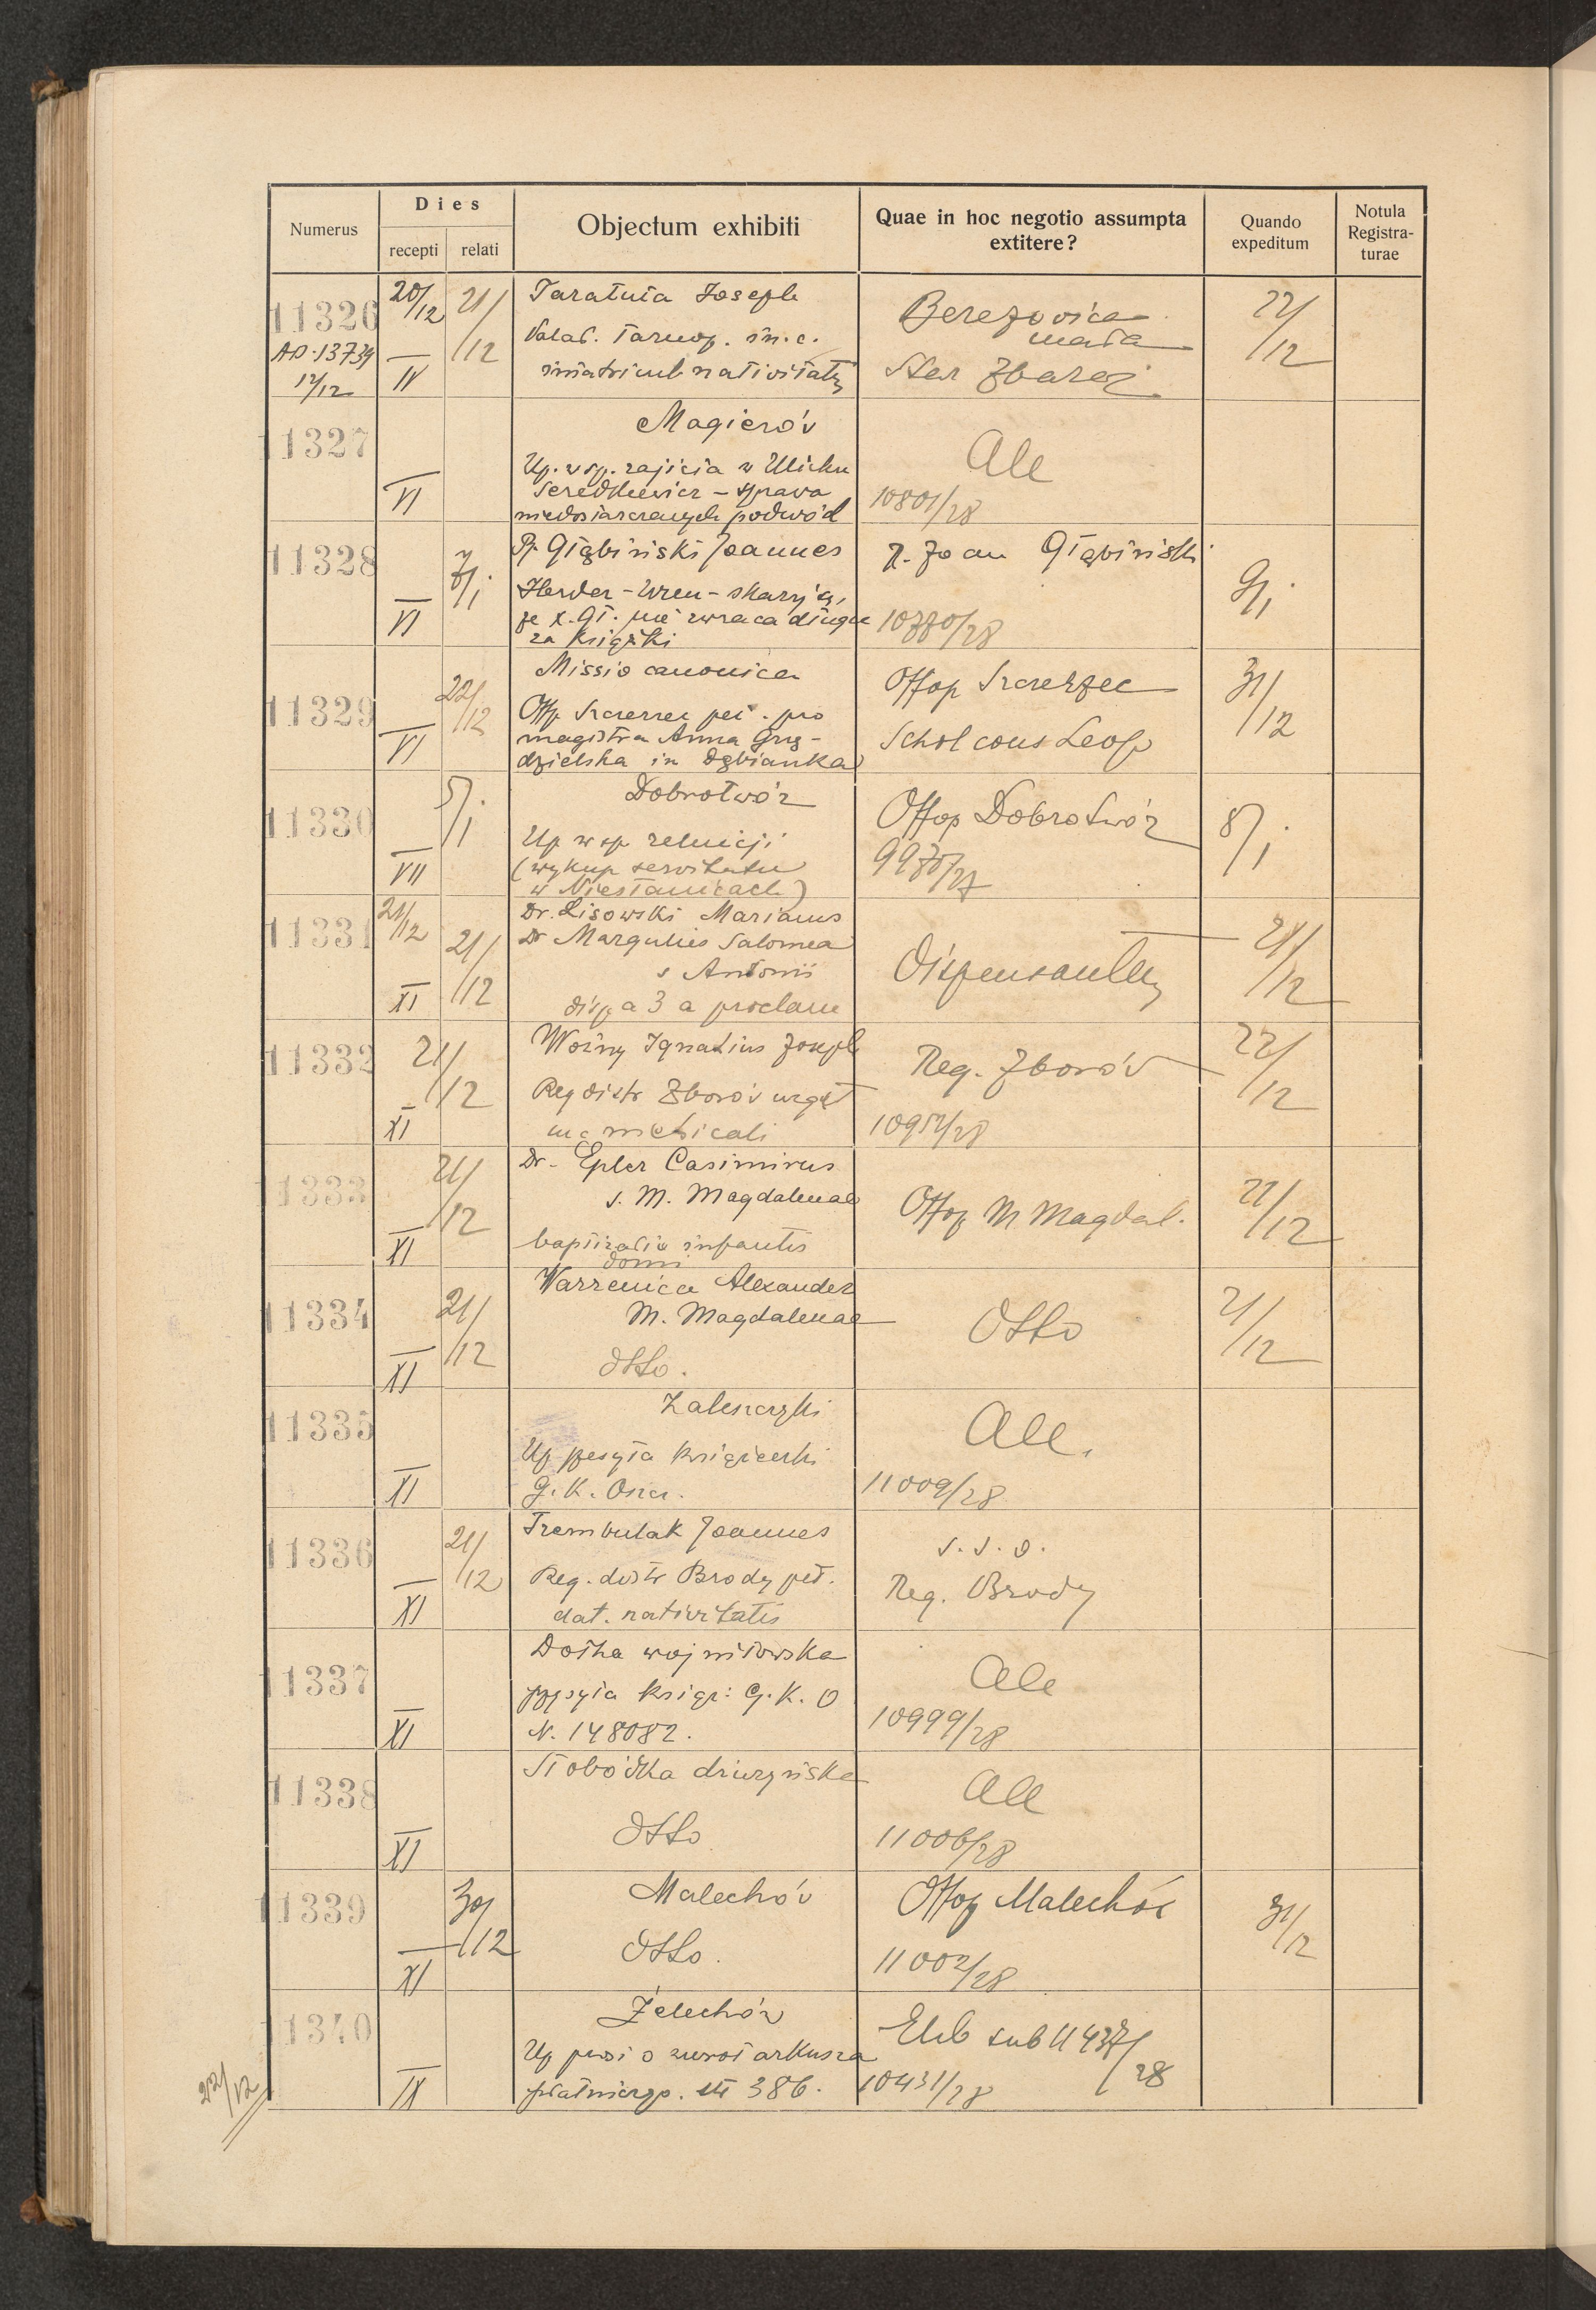 Numerus
Dies
recepti
relati
Objectum exhibiti
Quae in hoc negotio assumpta
extitere?
Quando
expeditum
Notula
Registra-
turae
11326
AD. 13734
12/12
20/12
IV
21/12
Taratuta Joseph
Palat. Tarnop. in. c.
immatricul nativitatis
Berezovica
mała
Star Zbaraz
22/12
11327
VI
Magierów
Up. w sp. zajścia w Ulicku
Seredkiewicz – sprawa
niedostarczanych podwód
All
10801/28
11328
VI
7/1
P. Głąbiński Joannes
Herder – Wien – skarży się,
że x. Gł. nie zwraca długu
za książki
P. Joan Głąbiński
10770/28
9/1
11329
VI
22/12
Missio canonica
Offp Szczerzec pet. pro
magistra Anna Grg-
dzielska in Dąbianka
Offop Szczerzec
Schol cons Leop
31/12
11330
VII
5/1
Dobrotwór
Up w sp
(wykup servitutu
w Niestanicach)
Offop Dobrotwór
8/1
11331
21/12
XI
21/12
Dr. Lisowski Marianus
Dr Margulies Salomea
s Antonii
disp a 3 a proclam
Dispensantur
21/12
11332
XI
21/12
Woźny Ignatius Joseph
Reg distr Zborów urget
metricali
Reg. Zborów
10952/28
22/12
11333
XI
21/12
Dr. Epler Casimirus
s. M. Magdalenae
baptizatio infantis
domi
Offop M Magdal.
22/12
11334
XI
21/12
Warzenica Alexander
M. Magdalenae
dtto.
Dtto
21/12
11335
XI
Zaleszczyki
Up przesyła książeczki
G. K. Oszcz.
All.
11009/28
11336
XI
21/12
Trembulak Joannes
Reg. distr Brody pet.
dat. nativitatis
s. s. d.
Reg. Brody
11337
XI
Dołha wojniłowska
przesyła książ: G. K. O
N. 148082.
All
10999/28
11338
XI
Słobódka dżuryńska
dtto
All
11006/28
11339
XI
30/12
Malechów
dtto.
Offop Malechów
11002/28
31/12
11340
IX
Żelechów
Up prosi o zwrot arkusza
płatniczego. 386.
Elib sub 11437/28
10431/28
22/12